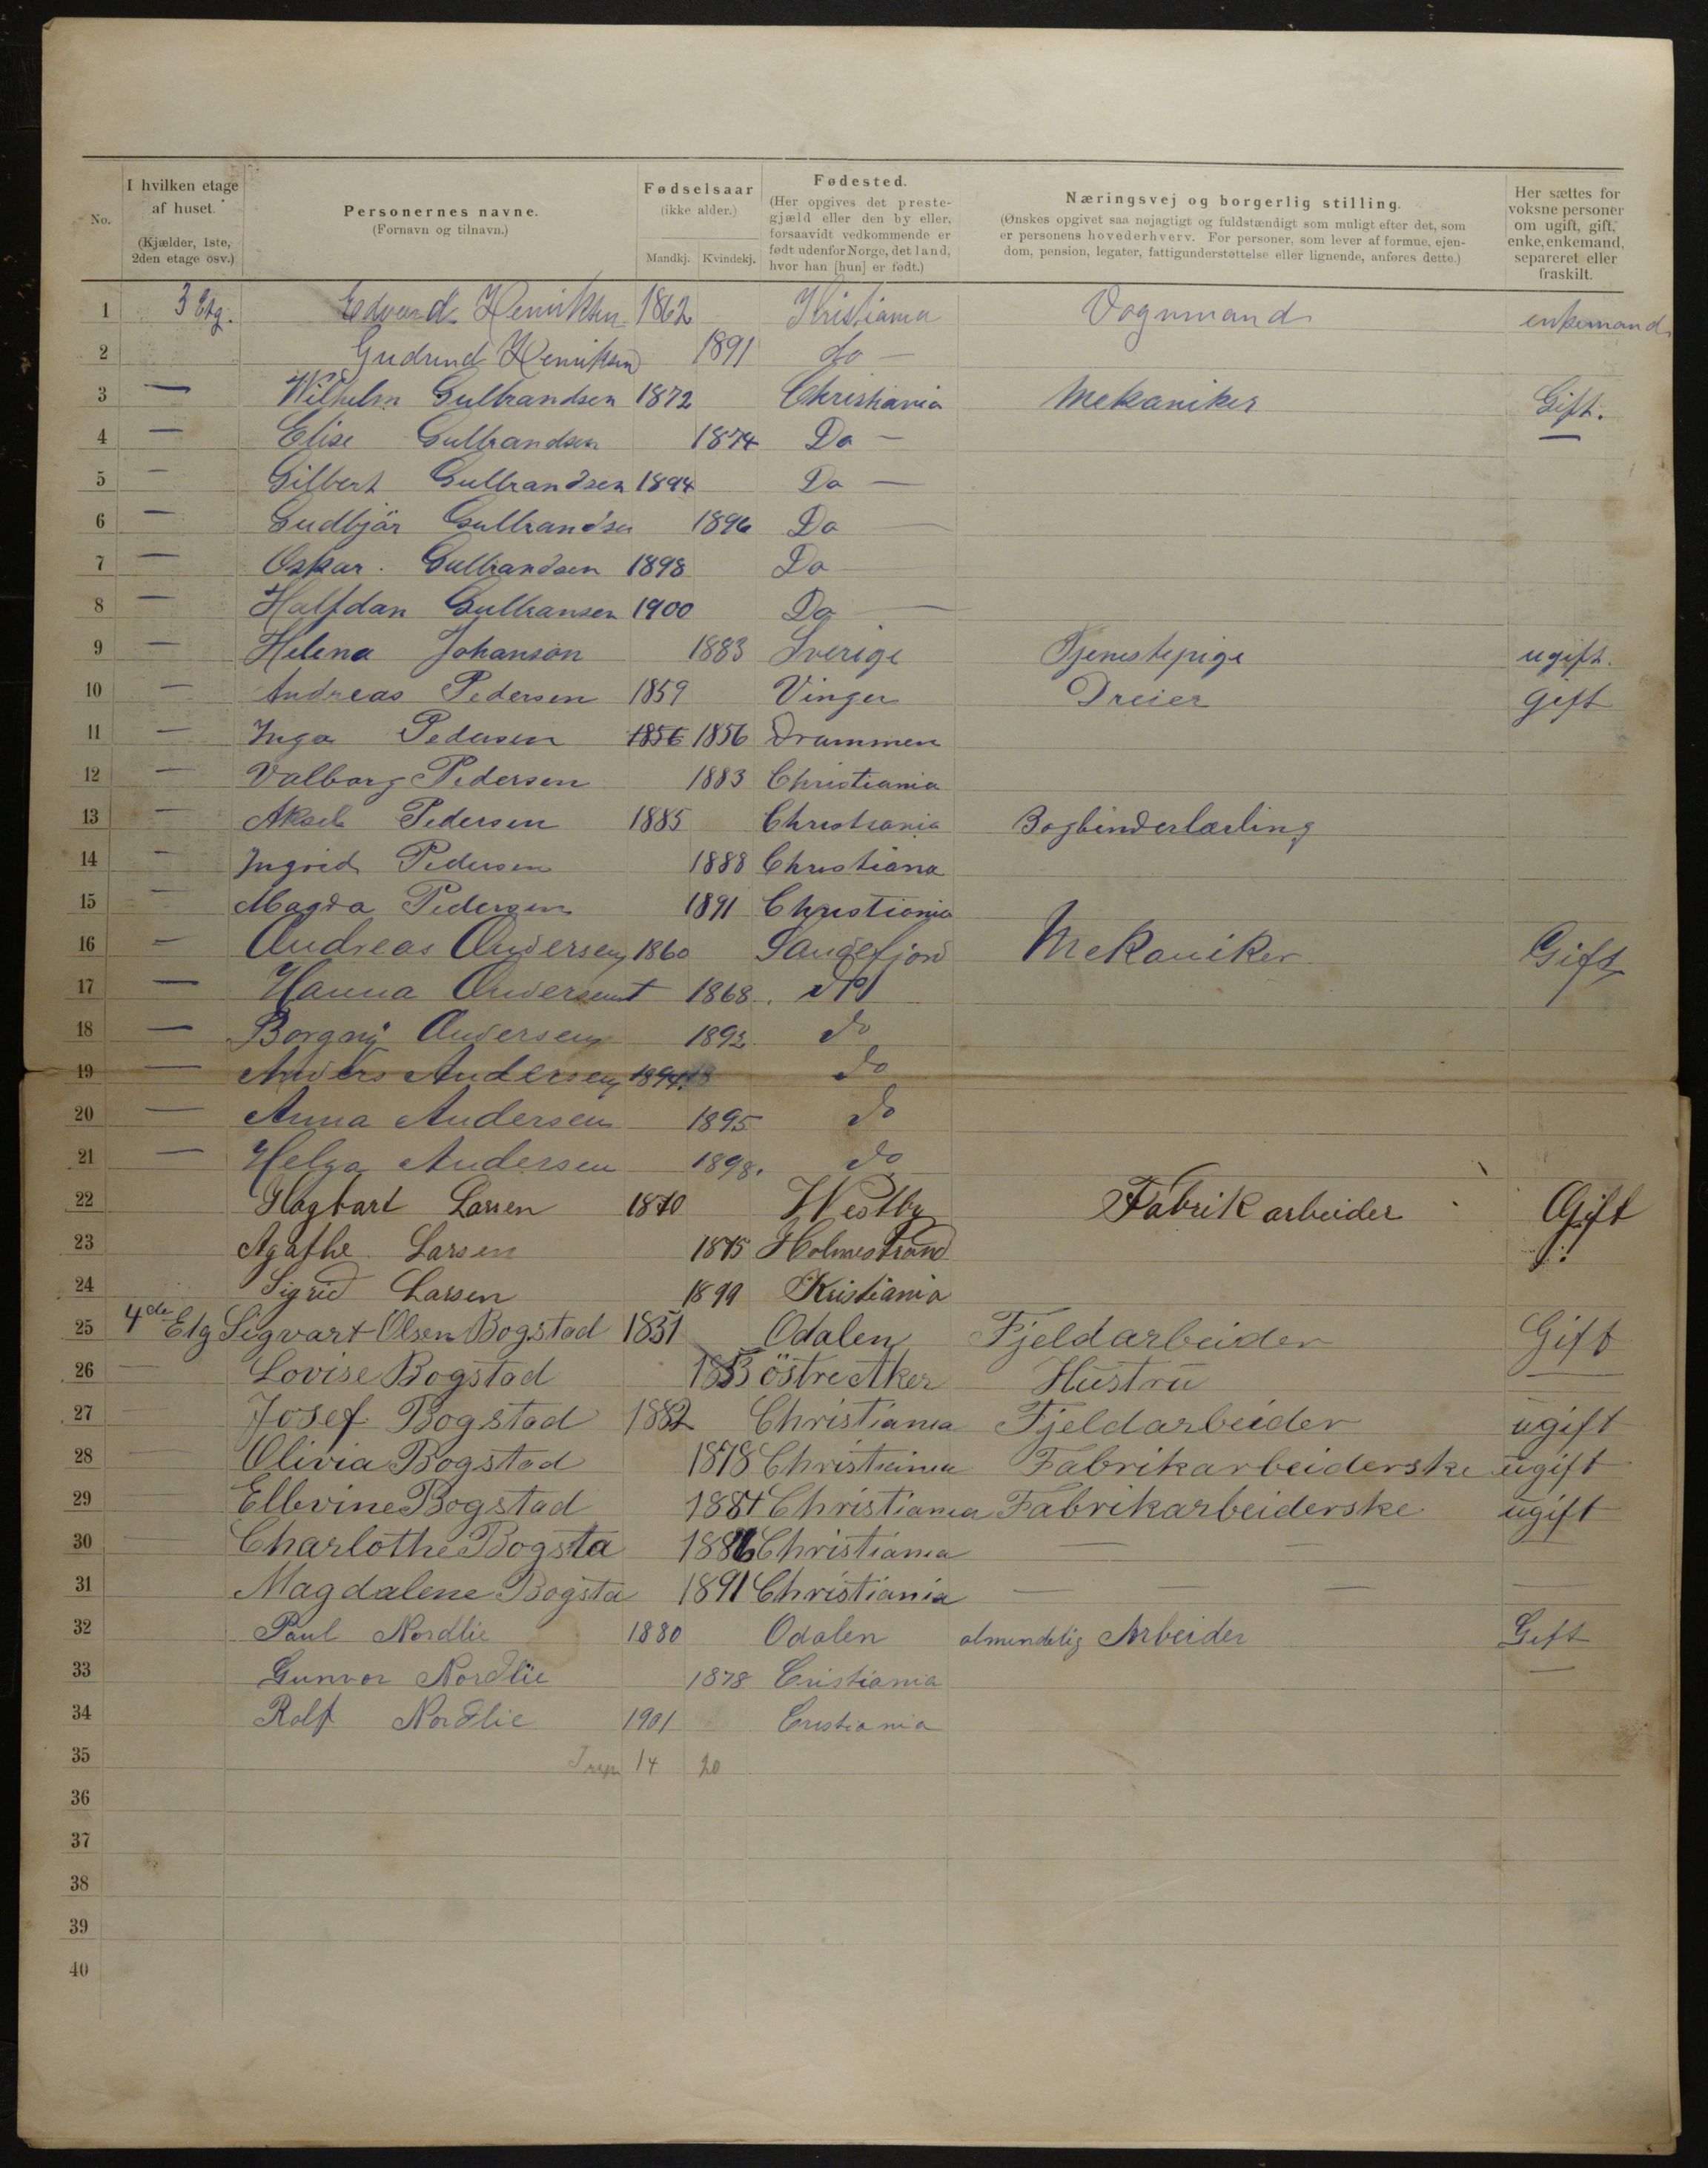 No. | I hvilken etage af huset. (Kjælder, 1ste, 2den etage osv.) | Personernes navne. (Fornavn og tilnavn.) | Fødselsaar (ikke alder.) Mandkj. Kvindekj. | Fødested. (Her opgives det prestegjæld eller den by eller, forsaavidt vedkommende er født udenfor Norge, det land, hvor han [hun] er født.) | Næringsvej og borgerlig stilling. (Ønskes opgivet saa nøjagtigt og fuldstændigt som muligt efter det, som er personens hovederhverv. For personer, som lever af formue, ejendom, pension, legater, fattigunderstøttelse eller lignende, anføres dette.) | Her sættes for voksne personer om ugift, gift, enke, enkemand, separeret eller fraskilt.
1 3 Etg. Edvard Henriksen 1862 Kristiania Vognmand enkemand
2 Gudrund Henriksen 1891 do —
3 — Wilhelm Gulbrandsen 1872 Christiania Mekaniker Gift.
4 — Elise Gulbrandsen 1874 Do — —
5 — Gilbert Gulbrandsen 1894 Do —
6 — Gudbjär Gulbrandsen 1896 Do —
7 — Oskar. Gulbrandsen 1898 Do —
8 — Halfdan Gulbransen 1900 Do —
9 — Helena Johanson 1883 Sverige Tjenestepige ugift.
10 — Andreas Pedersen 1859 Vinger Dreier gift
11 — Inga Pedersen 1856 1856 Drammen
12 — Valborg Pedersen 1883 Christiania
13 — Aksel Pedersen 1885 Christiania Bogbinderlærling
14 — Ingrid Pedersen 1888 Christiana
15 — Magda Pedersen 1891 Christiania
16 — Andreas Andersen 1860 Sandefjord Mekaniker Gift
17 — Hanna Andersen 1868. do
18 — Borgny Andersen do
19 — Anders Andersen 1894 do
20 — Anna Andersen 1895 do
21 — Helga Andersen 1898. do
22 Hagbart Larsen 1870 Westby Fabrik arbeider Gift
23 Agathe Larsen 1875 Holmestrand
24 Sigrid Larsen 1899 Kristiania
25 4de Etg Sigvart Olsen Bogstad 1851 Odalen Fjeldarbeider Gift
26 — Lovise Bogstad 1853 östre Aker Hustru —
27 — Josef Bogstad 1882 Christiania Fjeldarbeider ugift
28 — Olivia Bogstad 1878 Christiania Fabrikarbeiderske ugift
29 — Ellevine Bogstad 1884 Christiania Fabrikarbeiderske ugift
30 — Charlothe Bogsta 1886 Christiania — — —
31 Magdalene Bogsta 1891 Christiania — — — —
32 Paul Nordlie 1880 Odalen almindelig Arbeider Gift
33 Gunvor Nordlie 1878 Cristiania —
34 Rolf Nordlie 1901 Cristiania
35 14 20
36
37
38
39
40